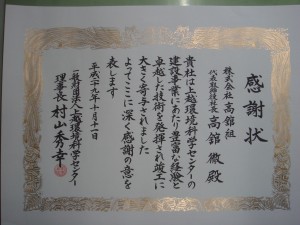 感謝状
株式会社 高舘組
代表取締役社長 高舘 徹 殿
貴社は上越環境科学センターの
建設事業にあたり豊富な経験と
卓越した技術を発揮され竣工に
大きく寄与されました
よってここに深く感謝の意を
表します
平成二十九年十月十一日
一般財団法人上越環境科学センター
理事長 村山秀幸